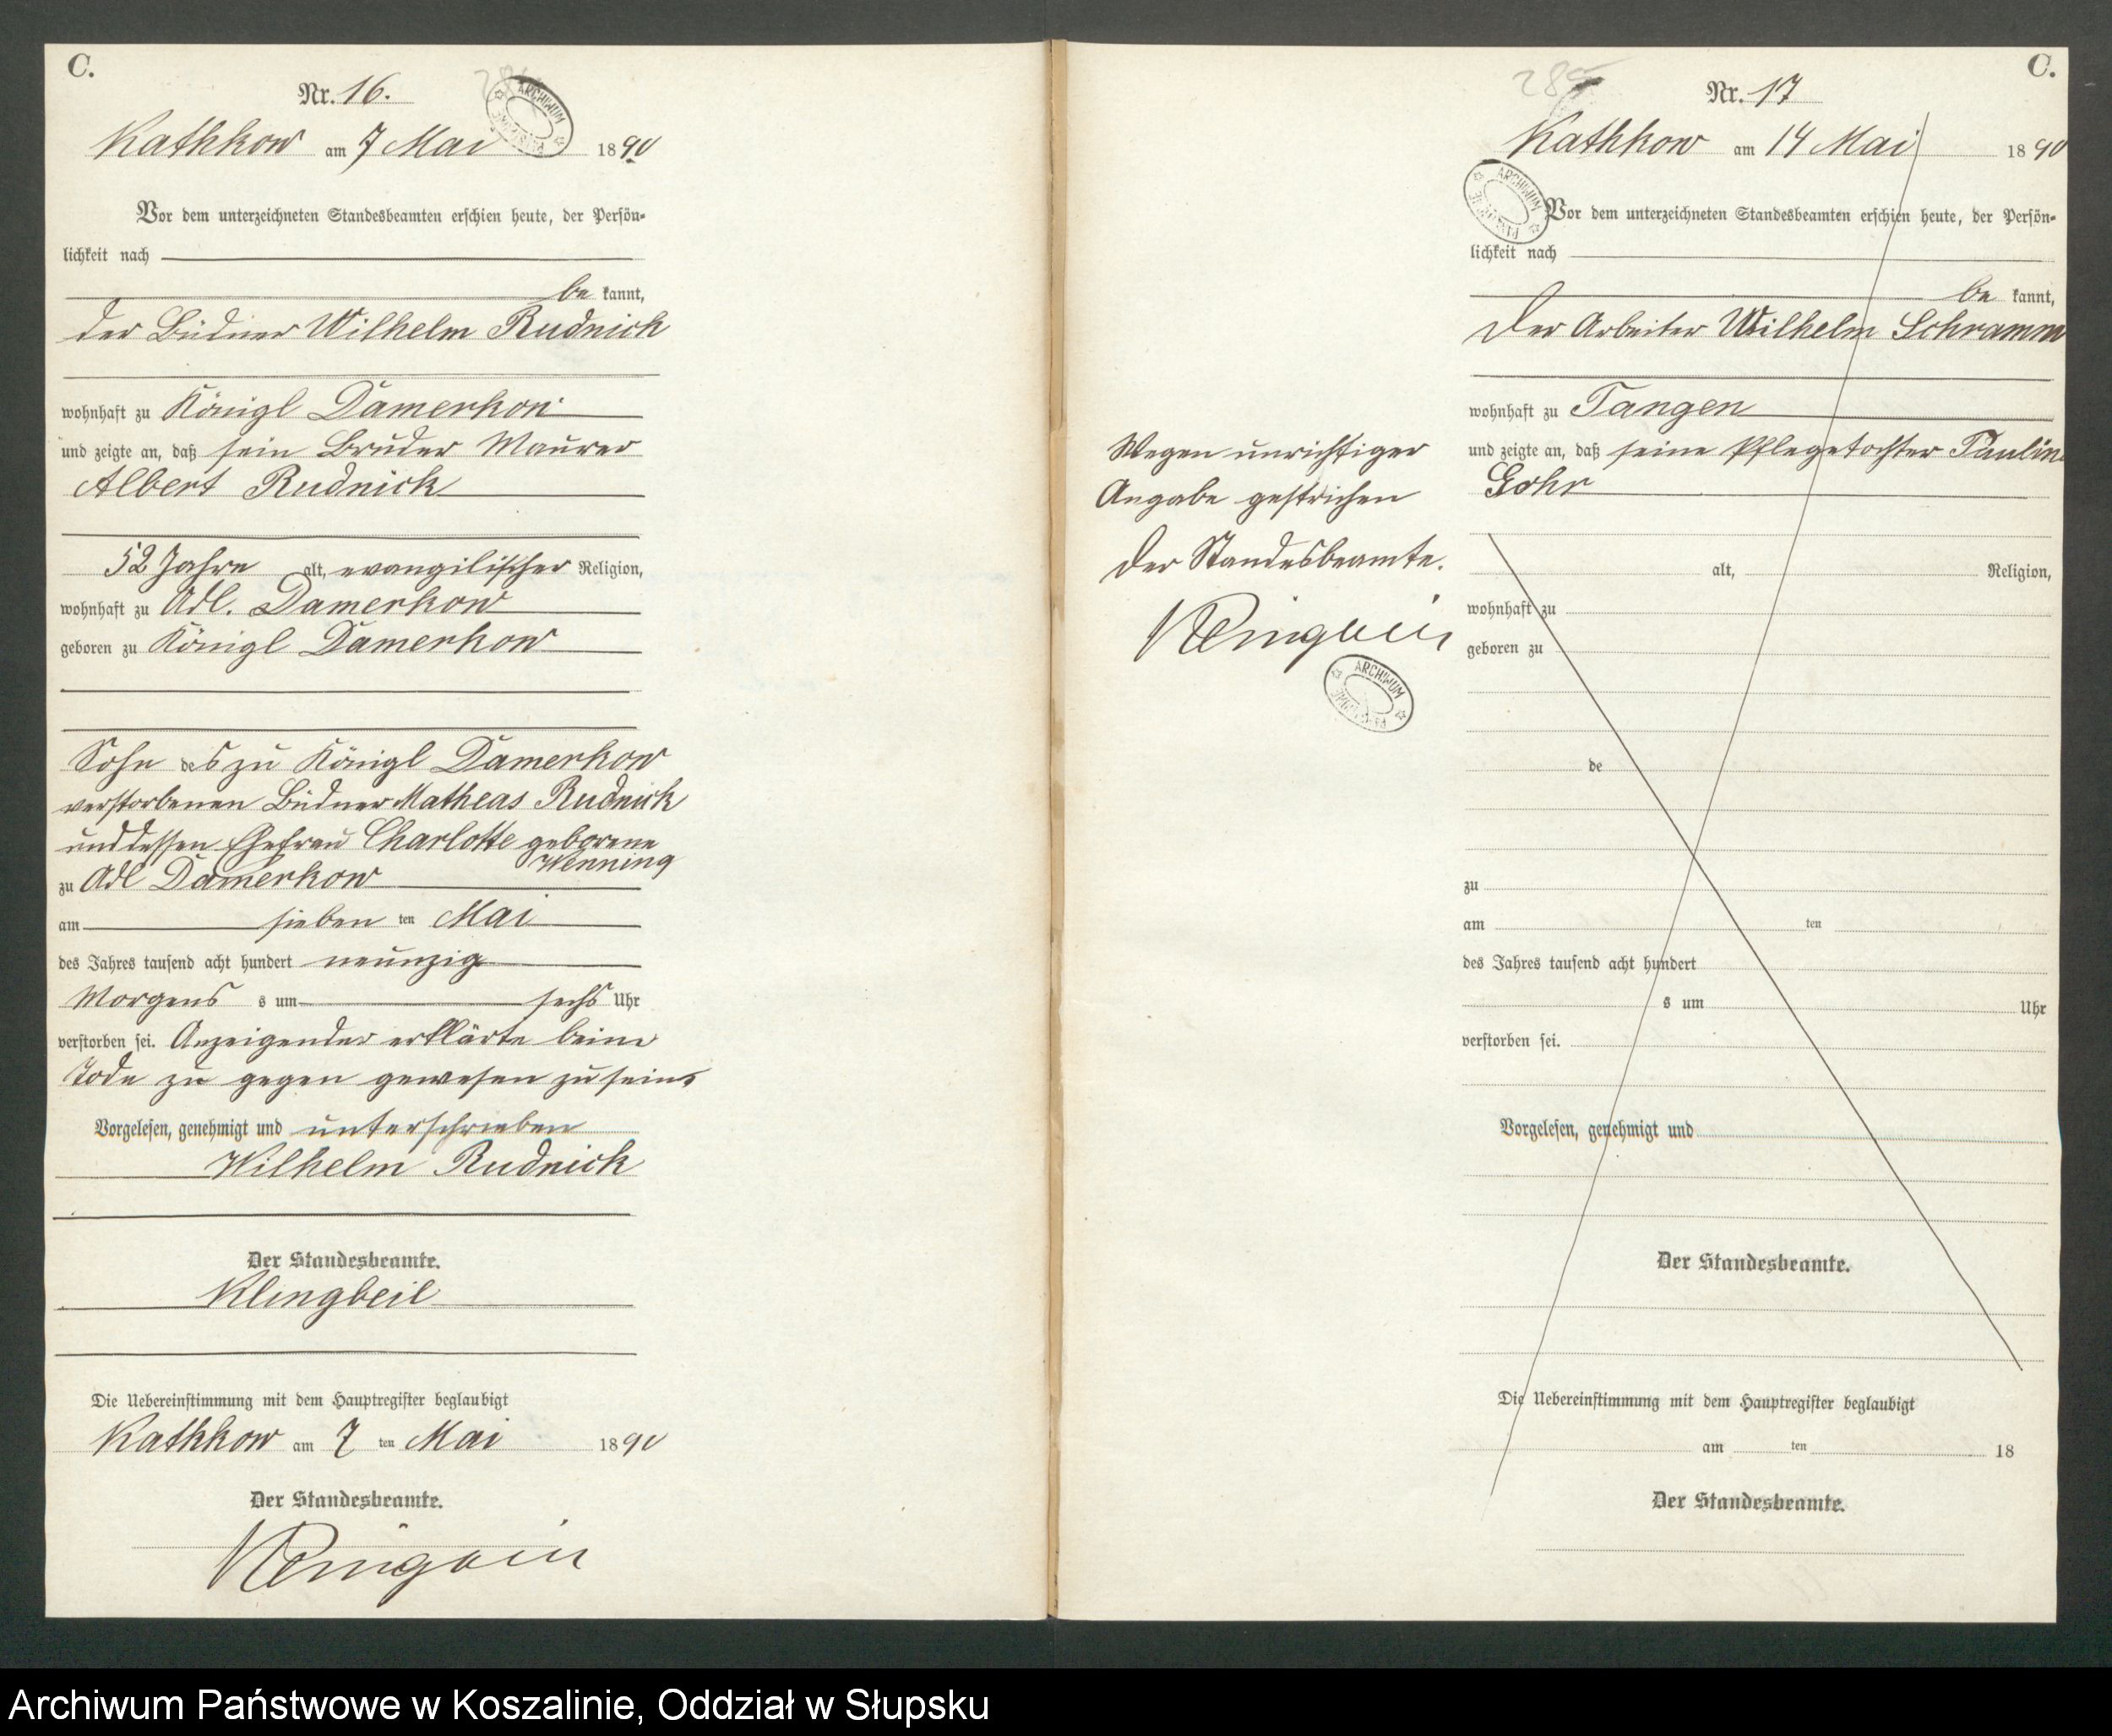 C.
Nr. 16.
ARCHIWUM
Kathkow am 7 Mai 1890
Vor dem unterzeichneten Standesbeamten erschien heute, der Persön-
lichkeit nach
be kannt,
der Büdner Wilhelm Rudnick
wohnhaft zu Königl Damerkow
und zeigte an, daß sein Bruder Maurer
Albert Rudnick
52 Jahre alt, evangelischer Religion,
wohnhaft zu Adl. Damerkow
geboren zu Königl Damerkow
Sohn des zu Königl Damerkow
verstorbenen Büdner Matheas Rudnick
und dessen Ehefrau Charlotte geborene
Wenning
zu Adl Damerkow
am sieben ten Mai
des Jahres tausend acht hundert neunzig
Morgens s um sechs Uhr
verstorben sei. Anzeigender erklärte beim
Tode zu gegen gewesen zu sein
Vorgelesen, genehmigt und unterschrieben
Wilhelm Rudnick
Der Standesbeamte.
Klingbeil
Die Uebereinstimmung mit dem Hauptregister beglaubigt
Kathkow am 7 ten Mai 1890
Der Standesbeamte.
Klingbeil
C.
285
Nr. 17
Kathkow am 14 Mai 1890
ARCHIWUM
Vor dem unterzeichneten Standesbeamten erschien heute, der Persön-
lichkeit nach
be kannt,
Der Arbeiter Wilhelm Schramm
wohnhaft zu Tangen
und zeigte an, daß seine Pflegetochter Pauline
Gohr
Wegen unrichtiger
Angabe gestrichen
Der Standesbeamte.
Klingbeil
ARCHIWUM
alt, Religion,
wohnhaft zu
geboren zu
de
zu
am ten
des Jahres tausend acht hundert
s um Uhr
verstorben sei.
Vorgelesen, genehmigt und
Der Standesbeamte.
Die Uebereinstimmung mit dem Hauptregister beglaubigt
am ten 18
Der Standesbeamte.
Archiwum Państwowe w Koszalinie, Oddział w Słupsku